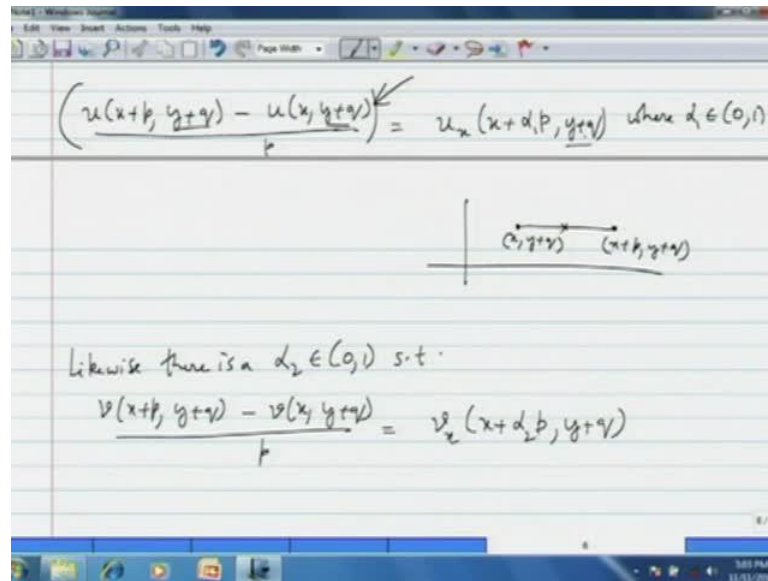 Note1 - Windows Journal
Edit View Insert Actions Tools Help
Page Width
(u(x+p, y+q) - u(x, y+q) / p) = u_x(x+α_1p, y+q) where α_1 ∈ (0,1)
(x, y+q) (x+p, y+q)
Likewise there is a α_2 ∈ (0,1) s.t.
v(x+p, y+q) - v(x, y+q) / p = v_x(x+α_2p, y+q)
6
5:03 PM